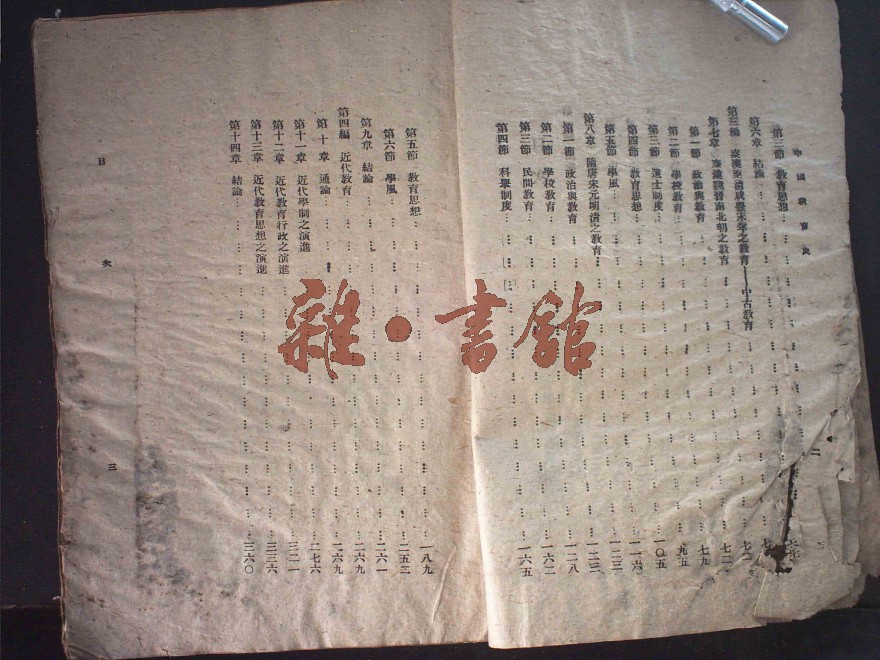 中國教育史
二
第三節 教育思想
第六章 結論
第三編 秦漢至清咸豐末年之教育——中古教育
第七章 秦漢魏晉南北朝之教育 七二
第一節 政治與教育 七二
第二節 學校教育 七九
第三節 選士制度 九五
第四節 教育思想 一〇五
第五節 學風 一一六
第八章 隋唐宋元明清之教育 一二三
第一節 政治與教育 一二三
第二節 學校教育 一二八
第三節 民間教育 一六二
第四節 科舉制度 一六五
第五節 教育思想 一八九
第六節 學風 二五三
第九章 結論 二六一
第四編 近代教育 二六九
第十章 通論 二六九
第十一章 近代學制之演進 二七六
第十二章 近代教育行政之演進 三二一
第十三章 近代教育思想之演進 三三六
第十四章 結論 三六〇
目次
三
雜·書館